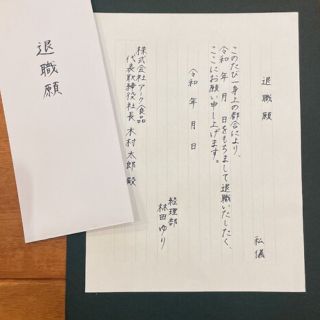 退職願
退職願
私儀
このたび一身上の都合により、
令和 年 月 日をもちまして退職いたしたく、
ここにお願い申し上げます。
令和 年 月 日
経理部
林田ゆり
株式会社アーク食品
代表取締役社長 木村太郎 殿